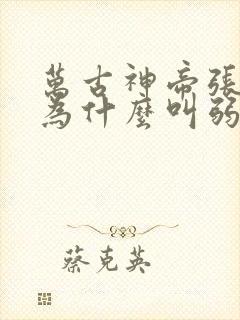 萬古神帝張
為什麼叫弱
蔡克英